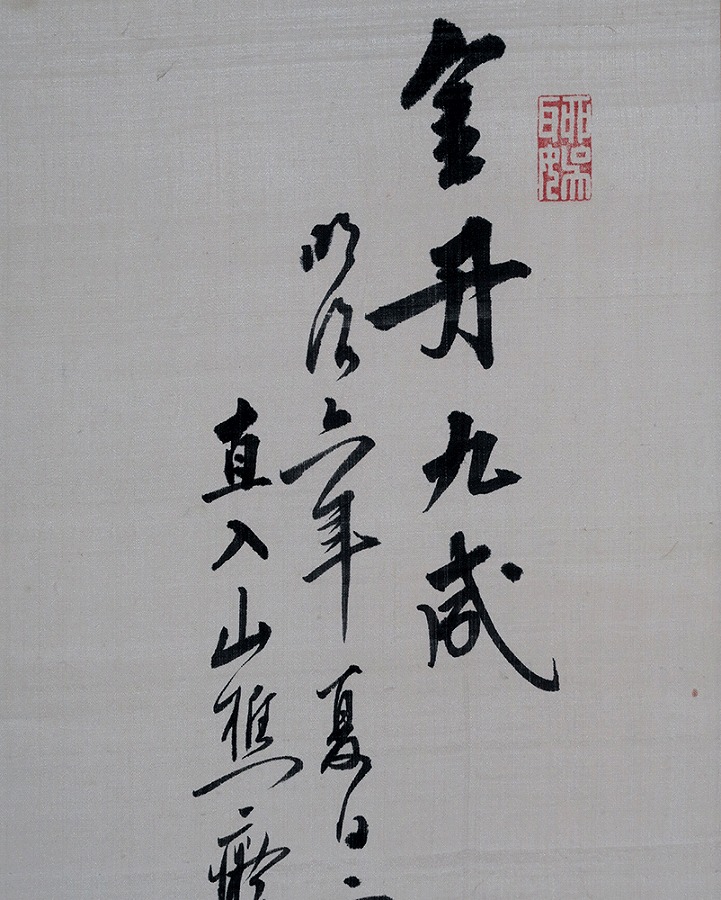 金丹九成
明治六年夏日
直入山樵